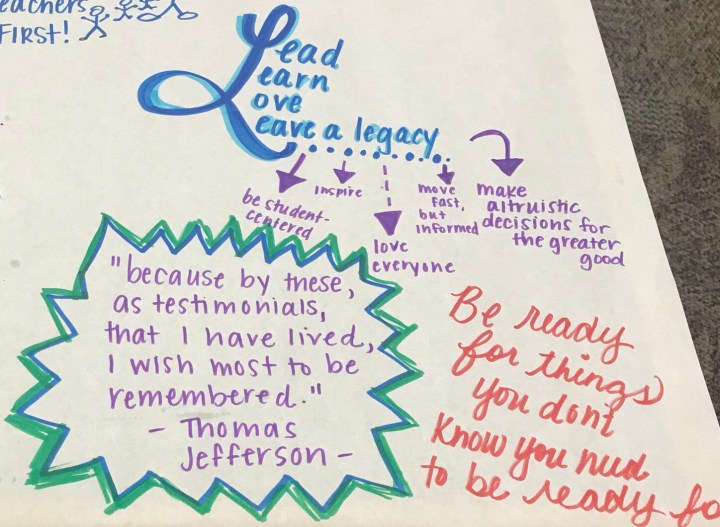 eachers
FIRST!
Lead
Learn
Love
Leave a legacy
be student-
centered
inspire
love
everyone
move
fast,
but
informed
make
altruistic
decisions for
the greater
good
"because by these,
as testimonials,
that I have lived,
I wish most to be
remembered."
- Thomas
Jefferson -
Be ready
for things
you dont
Know you need
to be ready fo